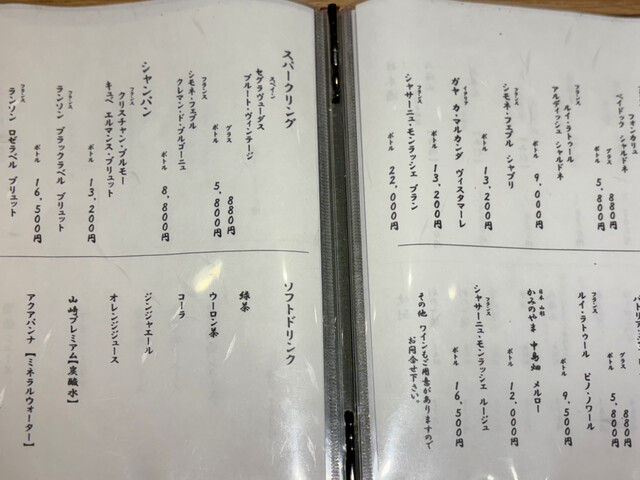 フォンカリュ
ペイドック シャルドネ
グラス 880円
ボトル 5,800円
フランス
ルイ・ラトゥール
アルディッシュ シャルドネ
ボトル 9,000円
フランス
シモネ・フェブル シャブリ
ボトル 13,200円
イタリア
ガヤ カ・マルカンダ ヴィスタマーレ
ボトル 13,200円
フランス
シャサーニュ・モンラッシェ ブラン
ボトル 22,000円
グラス 880円
ボトル 5,800円
フランス
ルイ・ラトゥール ピノ・ノワール
ボトル 9,500円
日本 山形
かみのやま 中島畑 メルロー
ボトル 12,000円
フランス
シャサーニュ・モンラッシェ ルージュ
ボトル 16,500円
その他 ワインもご用意がありますので
お問合せ下さい。
スパークリング
スペイン
セグラヴューダス
ブルート・ヴィンテージ
グラス 880円
ボトル 5,800円
フランス
シモネ・フェブル
クレマンド・ブルゴーニュ
ボトル 8,800円
シャンパン
フランス
クリスチャン・ブルモー
キュベ エルマンス・ブリュット
ボトル 13,200円
フランス
ランソン ブラックラベル ブリュット
ボトル 16,500円
フランス
ランソン ロゼラベル ブリュット
ソフトドリンク
緑茶
ウーロン茶
コーラ
ジンジャエール
オレンジジュース
山崎プレミアム【炭酸水】
アクアパンナ【ミネラルウォーター】